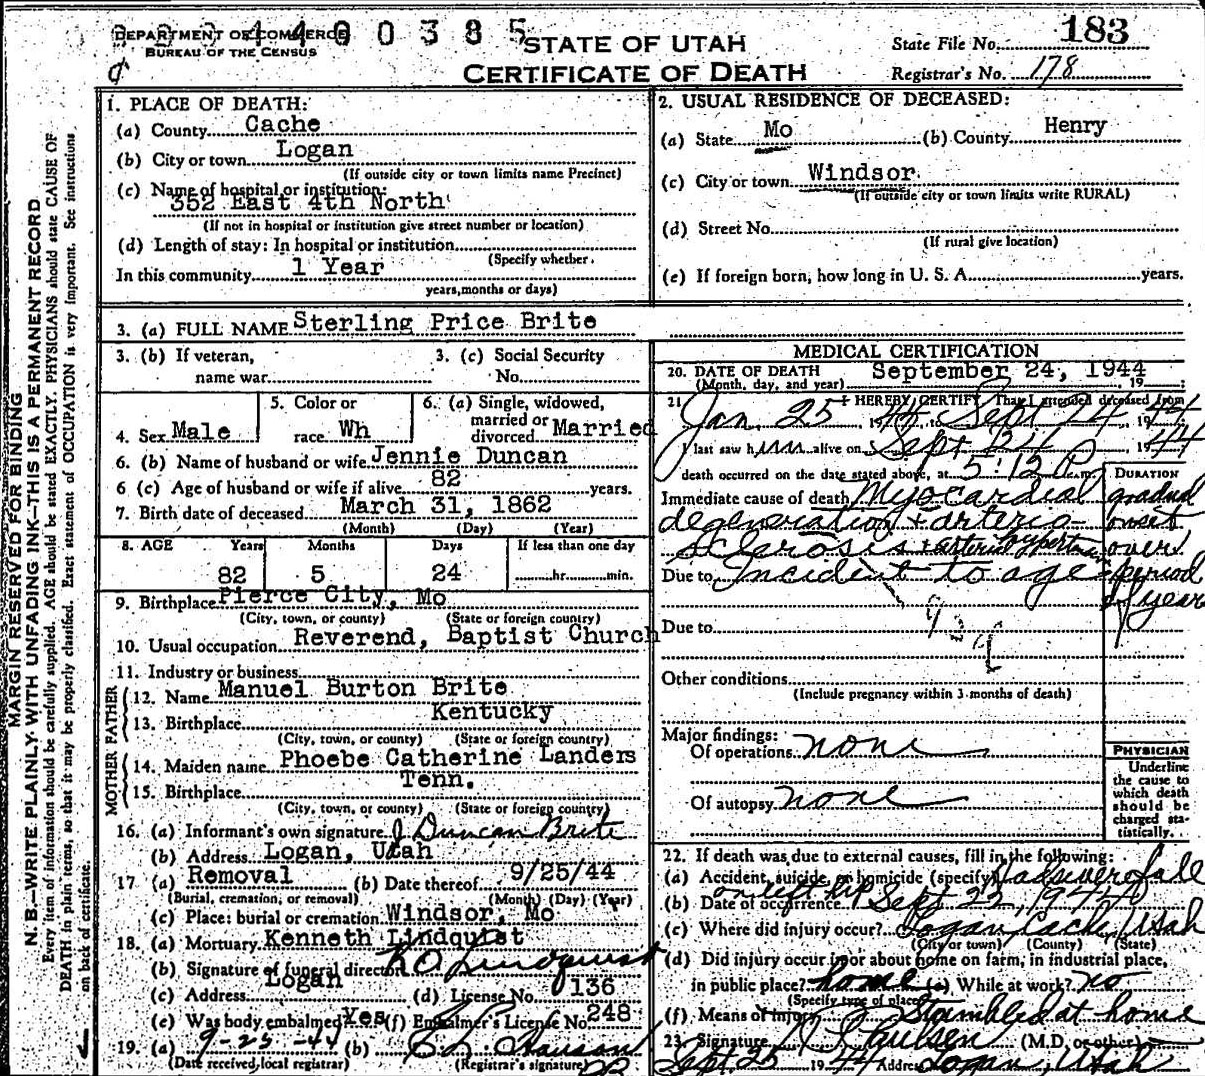 DEPARTMENT OF COMMERCE
BUREAU OF THE CENSUS
4400385
STATE OF UTAH
CERTIFICATE OF DEATH
State File No. 183
Registrar's No. 178
MARGIN RESERVED FOR BINDING
N. B.—WRITE PLAINLY WITH UNFADING INK—THIS IS A PERMANENT RECORD
Every item of information should be carefully supplied. AGE should be stated EXACTLY. PHYSICIANS should state CAUSE OF
DEATH in plain terms, so that it may be properly classified. Exact statement of OCCUPATION is very important. See instructions
on back of certificate.
1. PLACE OF DEATH:
(a) County Cache
(b) City or town Logan
(If outside city or town limits name Precinct)
(c) Name of hospital or institution:
352 East 4th North
(If not in hospital or institution give street number or location)
(d) Length of stay: In hospital or institution
(Specify whether
In this community 1 Year
years, months or days)
2. USUAL RESIDENCE OF DECEASED:
(a) State Mo (b) County Henry
(c) City or town Windsor
(If outside city or town limits write RURAL)
(d) Street No.
(If rural give location)
(e) If foreign born, how long in U. S. A. years.
3. (a) FULL NAME Sterling Price Brite
3. (b) If veteran,
name war
3. (c) Social Security
No.
4. Sex Male
5. Color or
race Wh
6. (a) Single, widowed,
married or
divorced Married
6. (b) Name of husband or wife Jennie Duncan
6 (c) Age of husband or wife if alive 82 years.
7. Birth date of deceased March 31, 1862
(Month) (Day) (Year)
8. AGE Years Months Days If less than one day
82 5 24 hr. min.
9. Birthplace Pierce City, Mo
(City, town, or county) (State or foreign country)
10. Usual occupation Reverend, Baptist Church
11. Industry or business
FATHER
12. Name Manuel Burton Brite
13. Birthplace Kentucky
(City, town, or county) (State or foreign country)
MOTHER
14. Maiden name Phoebe Catherine Landers
15. Birthplace Tenn.
(City, town, or county) (State or foreign country)
16. (a) Informant's own signature J Duncan Brite
(b) Address Logan, Utah
17 (a) Removal (b) Date thereof 9/25/44
(Burial, cremation, or removal) (Month) (Day) (Year)
(c) Place: burial or cremation Windsor, Mo
18. (a) Mortuary Kenneth Lindquist
(b) Signature of funeral director K O Lindquist
(c) Address Logan (d) License No. 136
(e) Was body embalmed? Yes (f) Embalmer's License No. 248
19. (a) 9-25-44 (b)
(Date received local registrar) (Registrar's signature)
MEDICAL CERTIFICATION
20. DATE OF DEATH September 24, 1944
(Month, day, and year) , 19
21. I HEREBY CERTIFY That I attended deceased from
Jan. 25 , 1944 to Sept 24 , 1944
I last saw him alive on Sept 24 1944
death occurred on the date stated above, at 5:12 P m.
DURATION
Immediate cause of death Myocardial
degeneration + arterio-
sclerosis + arterial
gradual
onset
over
period
of years
Due to Incident to age
Due to
Other conditions
(Include pregnancy within 3 months of death)
Major findings:
Of operations none
Of autopsy none
PHYSICIAN
Underline
the cause to
which death
should be
charged sta-
tistically.
22. If death was due to external causes, fill in the following:
(a) Accident, suicide, or homicide (specify) Had severe fall
on left hip
(b) Date of occurrence Sept 23, 1944
(c) Where did injury occur? Logan Cache Utah
(City or town) (County) (State)
(d) Did injury occur in or about home on farm, in industrial place,
in public place? home (e) While at work? no
(Specify type of place)
(f) Means of injury Stumbled at home
23. Signature Paulsen (M.D. or other)
Sept 25 1944 Address Logan, Utah